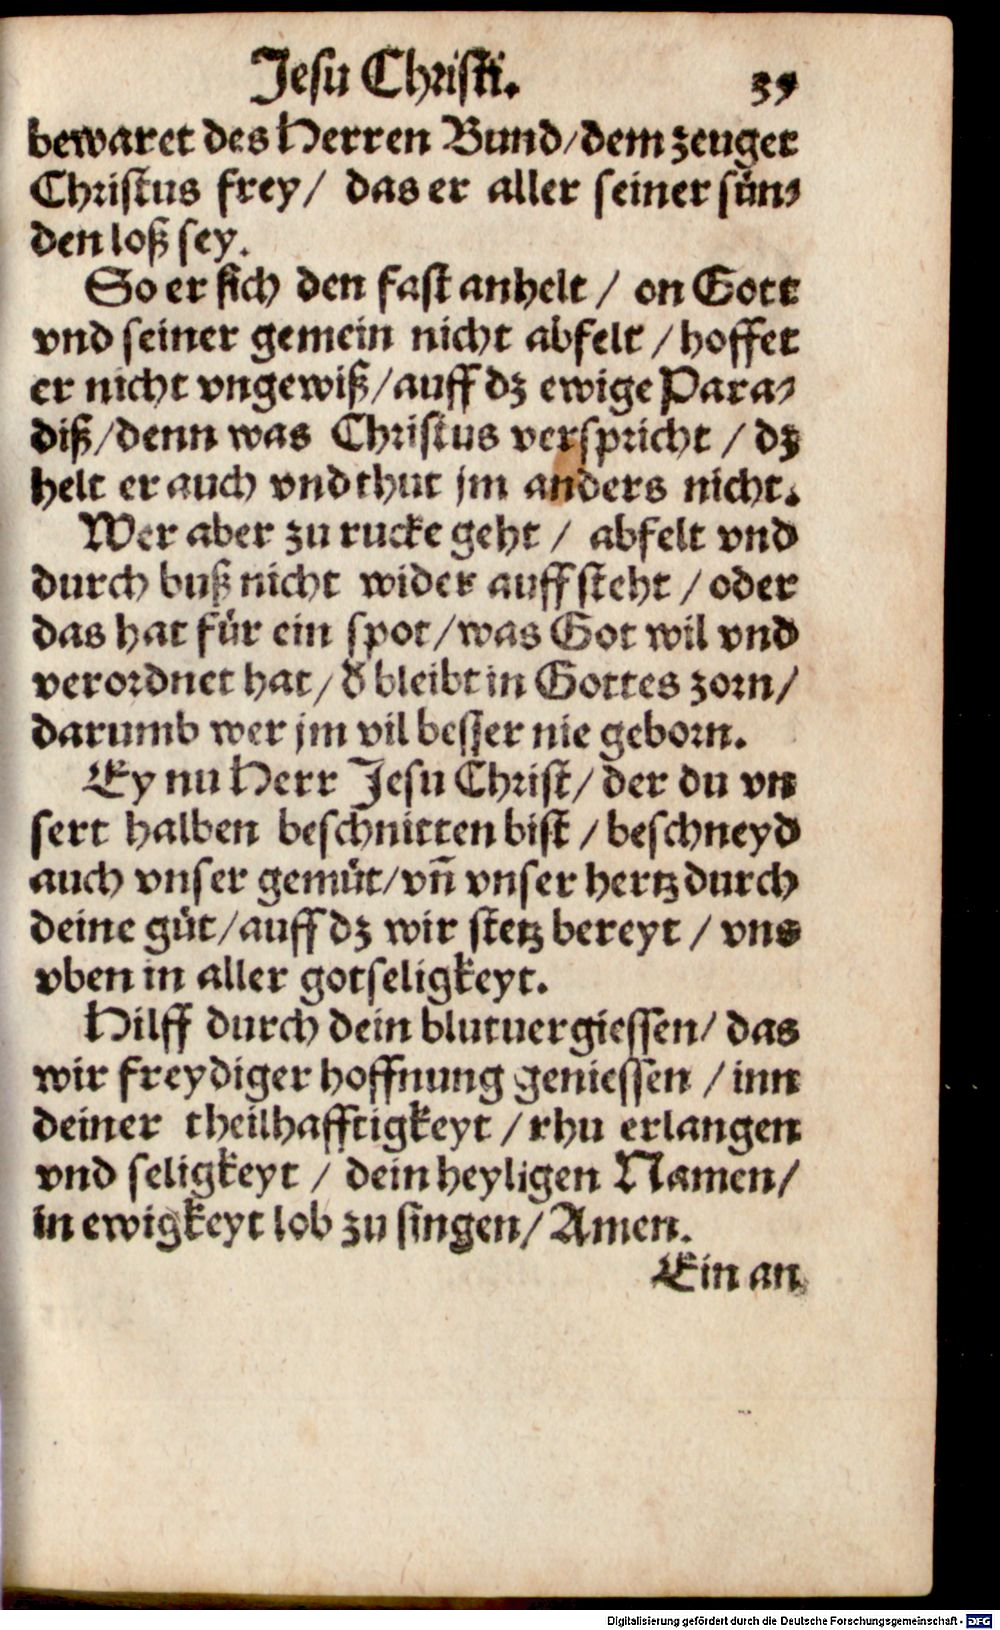 Jesu Christi. 39
bewaret des Herren Bund/dem zeuget
Christus frey/ das er aller seiner sün⸗
den loß sey.
So er sich den fast anhelt / on Gott
vnd seiner gemein nicht abfelt / hoffet
er nicht vngewiß/auff dz ewige Para⸗
diß/denn was Christus verspricht / dz
helt er auch vnd thut jm anders nicht.
Wer aber zu rucke geht / abfelt vnd
durch buß nicht wider auff steht / oder
das hat für ein spot/was Got wil vnd
verordnet hat/ d̕ bleibt in Gottes zorn/
darumb wer jm vil besser nie geborn.
Ey nu Herr Jesu Christ/ der du vn
sert halben beschnitten bist / beschneyd
auch vnser gemüt/vn̄ vnser hertz durch
deine güt/auff dz wir stetz bereyt / vns
vben in aller gotseligkeyt.
Hilff durch dein blutuergiessen/ das
wir freydiger hoffnung geniessen / inn
deiner theilhafftigkeyt / rhu erlangen
vnd seligkeyt / dein heyligen Namen/
in ewigkeyt lob zu singen/ Amen.
Ein an
Digitalisierung gefördert durch die Deutsche Forschungsgemeinschaft - DFG